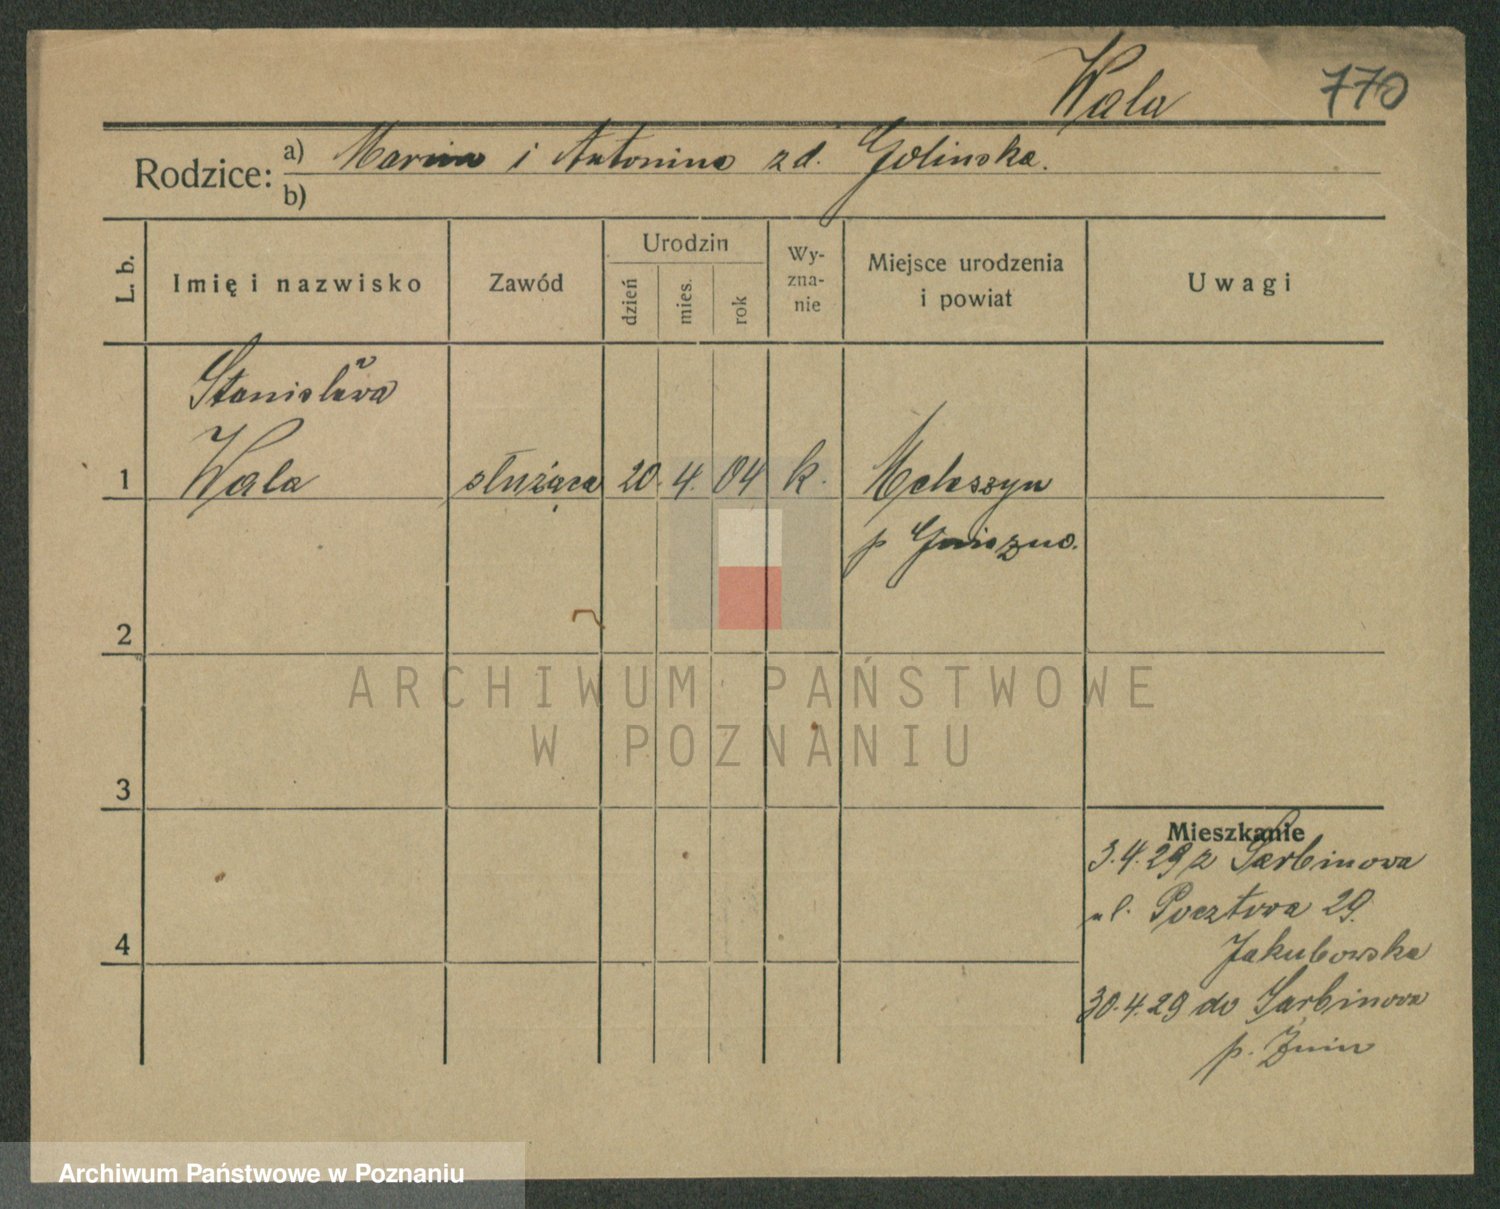 Wala 770
Rodzice: a) Marcin i Antonina zd. Golinska.
b)
L. b. Imię i nazwisko Zawód Urodzin dzień mies. rok Wy-zna-nie Miejsce urodzenia i powiat Uwagi
Stanisława
1 Wala służąca 20. 4. 04 k.
p Gniezno.
2
ARCHIWUM PAŃSTWOWE
W POZNANIU
3
Mieszkanie
3.4.29 z Sarbinowa
ul. Pocztowa 29.
4
Jakubowska
30.4.29 do Sarbinowa
p. Żnin
Archiwum Państwowe w Poznaniu